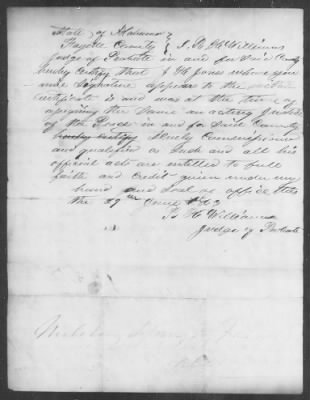 State of Alabama }
Fayette County } I, B. W. Williams
Judge of Probate in and for said County
hereby certify that J H Jones whose genu
ine Signature appear to the
Certificate is and was at the time of
signing the Same an acting Justice
of the Peace in and for Said County
hereby certify duly Commissioned
and qualified as Such and all his
official acts are entitled to full
faith and credit given under my
hand and Seal of office this
the 29th June
B. W. Williams
Judge of Probate